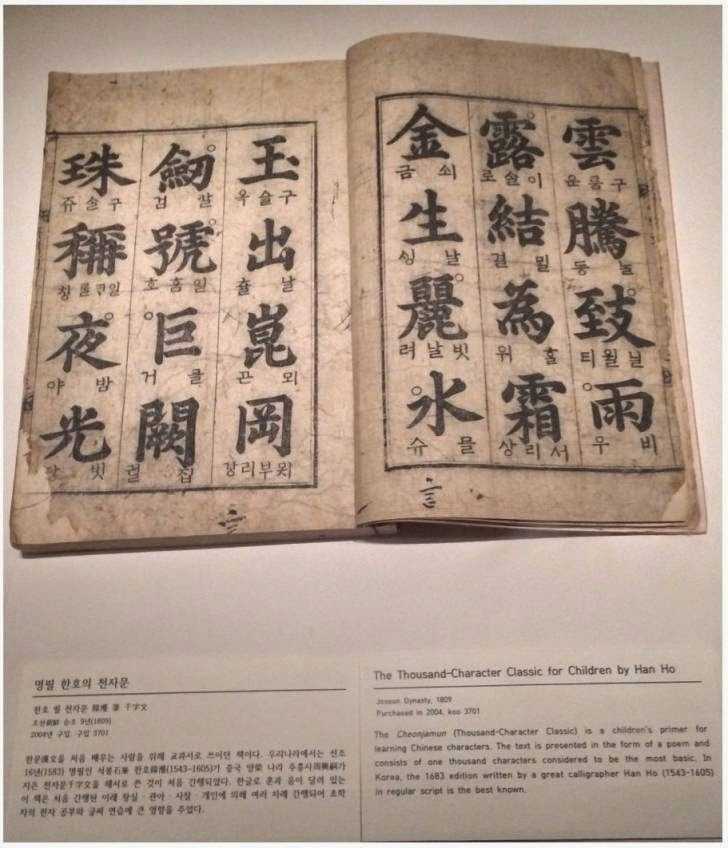 雲 구룸 운 騰 등 致 닐월 티 雨 비 우
露 이슬 로 結 ᄆᆡᆯ 결 為 ᄒᆞᆯ 위 霜 서리 상
金 쇠 금 生 날 ᄉᆡᆼ 麗 빗날 려 水 믈 슈
玉 구슬 옥 出 날 츌 崑 뫼 곤 岡 묏부리 강
劒 갈 검 號 일홈 호 巨 클 거 闕 집 궐
珠 구슬 쥬 稱 칭 夜 밤 야 光 빗
명필 한호의 천자문
한호 필 천자문 韓濩 筆 千字文
조선朝鮮 순조 9년(1809)
2004년 구입 구입 3701
한문漢文을 처음 배우는 사람을 위해 교과서로 쓰이던 책이다. 우리나라에서는 선조
16년(1583) 명필인 석봉石峯 한호韓濩(1543-1605)가 중국 양梁 나라 주흥사周興嗣가
지은 천자문千字文을 해서로 쓴 것이 처음 간행되었다. 한글로 훈과 음이 달려 있는
이 책은 처음 간행된 이래 왕실 · 관아 · 사찰 · 개인에 의해 여러 차례 간행되어 초학
자의 한자 공부와 글씨 연습에 큰 영향을 주었다.
The Thousand-Character Classic for Children by Han Ho
Joseon Dynasty, 1809
Purchased in 2004, koo 3701
The Cheonjamun (Thousand-Character Classic) is a children's primer for
learning Chinese characters. The text is presented in the form of a poem and
consists of one thousand characters considered to be the most basic. In
Korea, the 1683 edition written by a great calligrapher Han Ho (1543-1605)
in regular script is the best known.